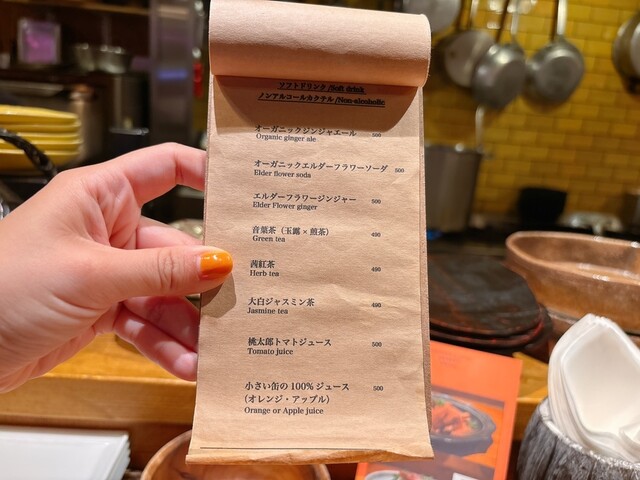 ソフトドリンク/Soft drink
ノンアルコールカクテル/Non-alcoholic
オーガニックジンジャエール 500
Organic ginger ale
オーガニックエルダーフラワーソーダ 500
Elder flower soda
エルダーフラワージンジャー 500
Elder Flower ginger
音葉茶（玉露×煎茶） 490
Green tea
茜紅茶 490
Herb tea
大白ジャスミン茶 490
Jasmine tea
桃太郎トマトジュース 500
Tomato juice
小さい缶の100%ジュース 500
（オレンジ・アップル）
Orange or Apple juice